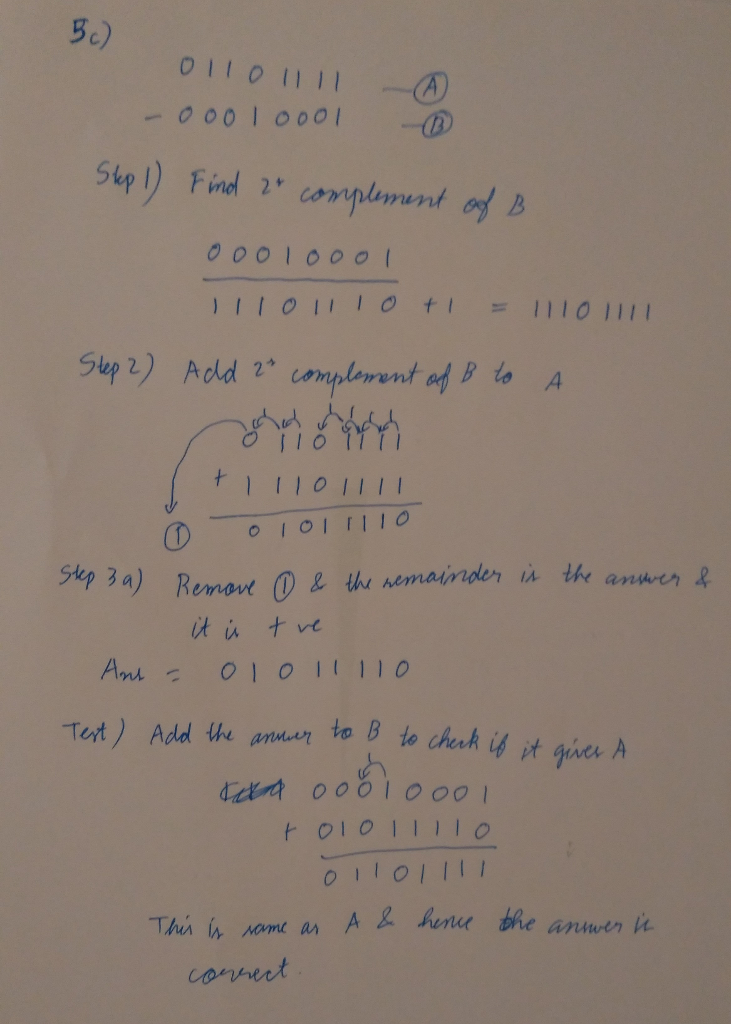 5c)
01101111 — Ⓐ
- 00010001 — Ⓑ
Step 1) Find 2's complement of B
00010001
11101110 + 1 = 11101111
Step 2) Add 2's complement of B to A
01101111
+ 11101111
① 01011110
Step 3a) Remove ① & the remainder is the answer &
it is +ve
Ans = 01011110
Test) Add the answer to B to check if it gives A
00010001
+ 01011110
01101111
This is same as A & hence the answer is
correct.